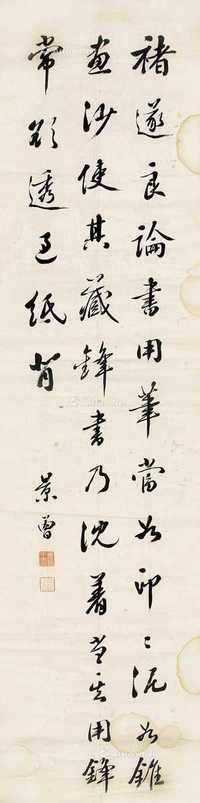 褚遂良論書用筆當如印印泥如錐
畫沙使其藏鋒書乃沈着當其用鋒
常欲透過紙背
景曾